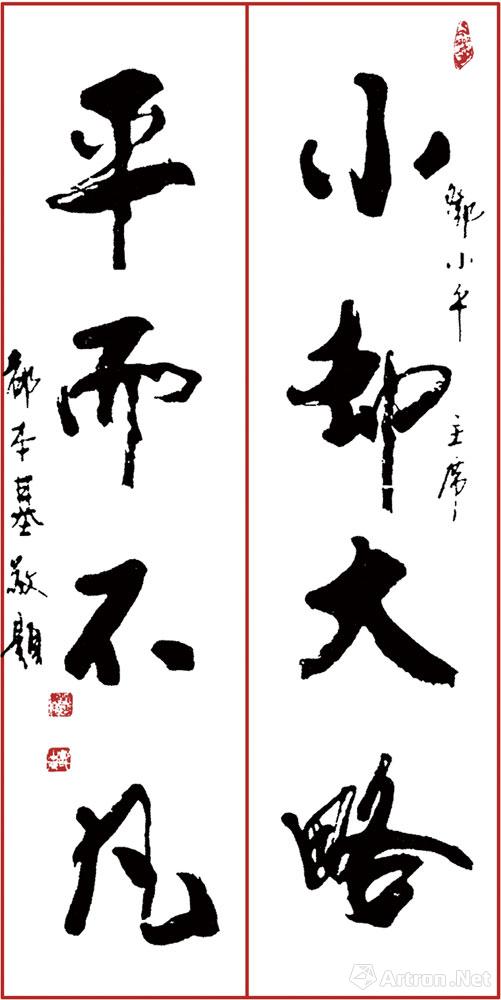 小却大略
鄧小平 主席
平而不凡
都本基敬題
Artron.Net